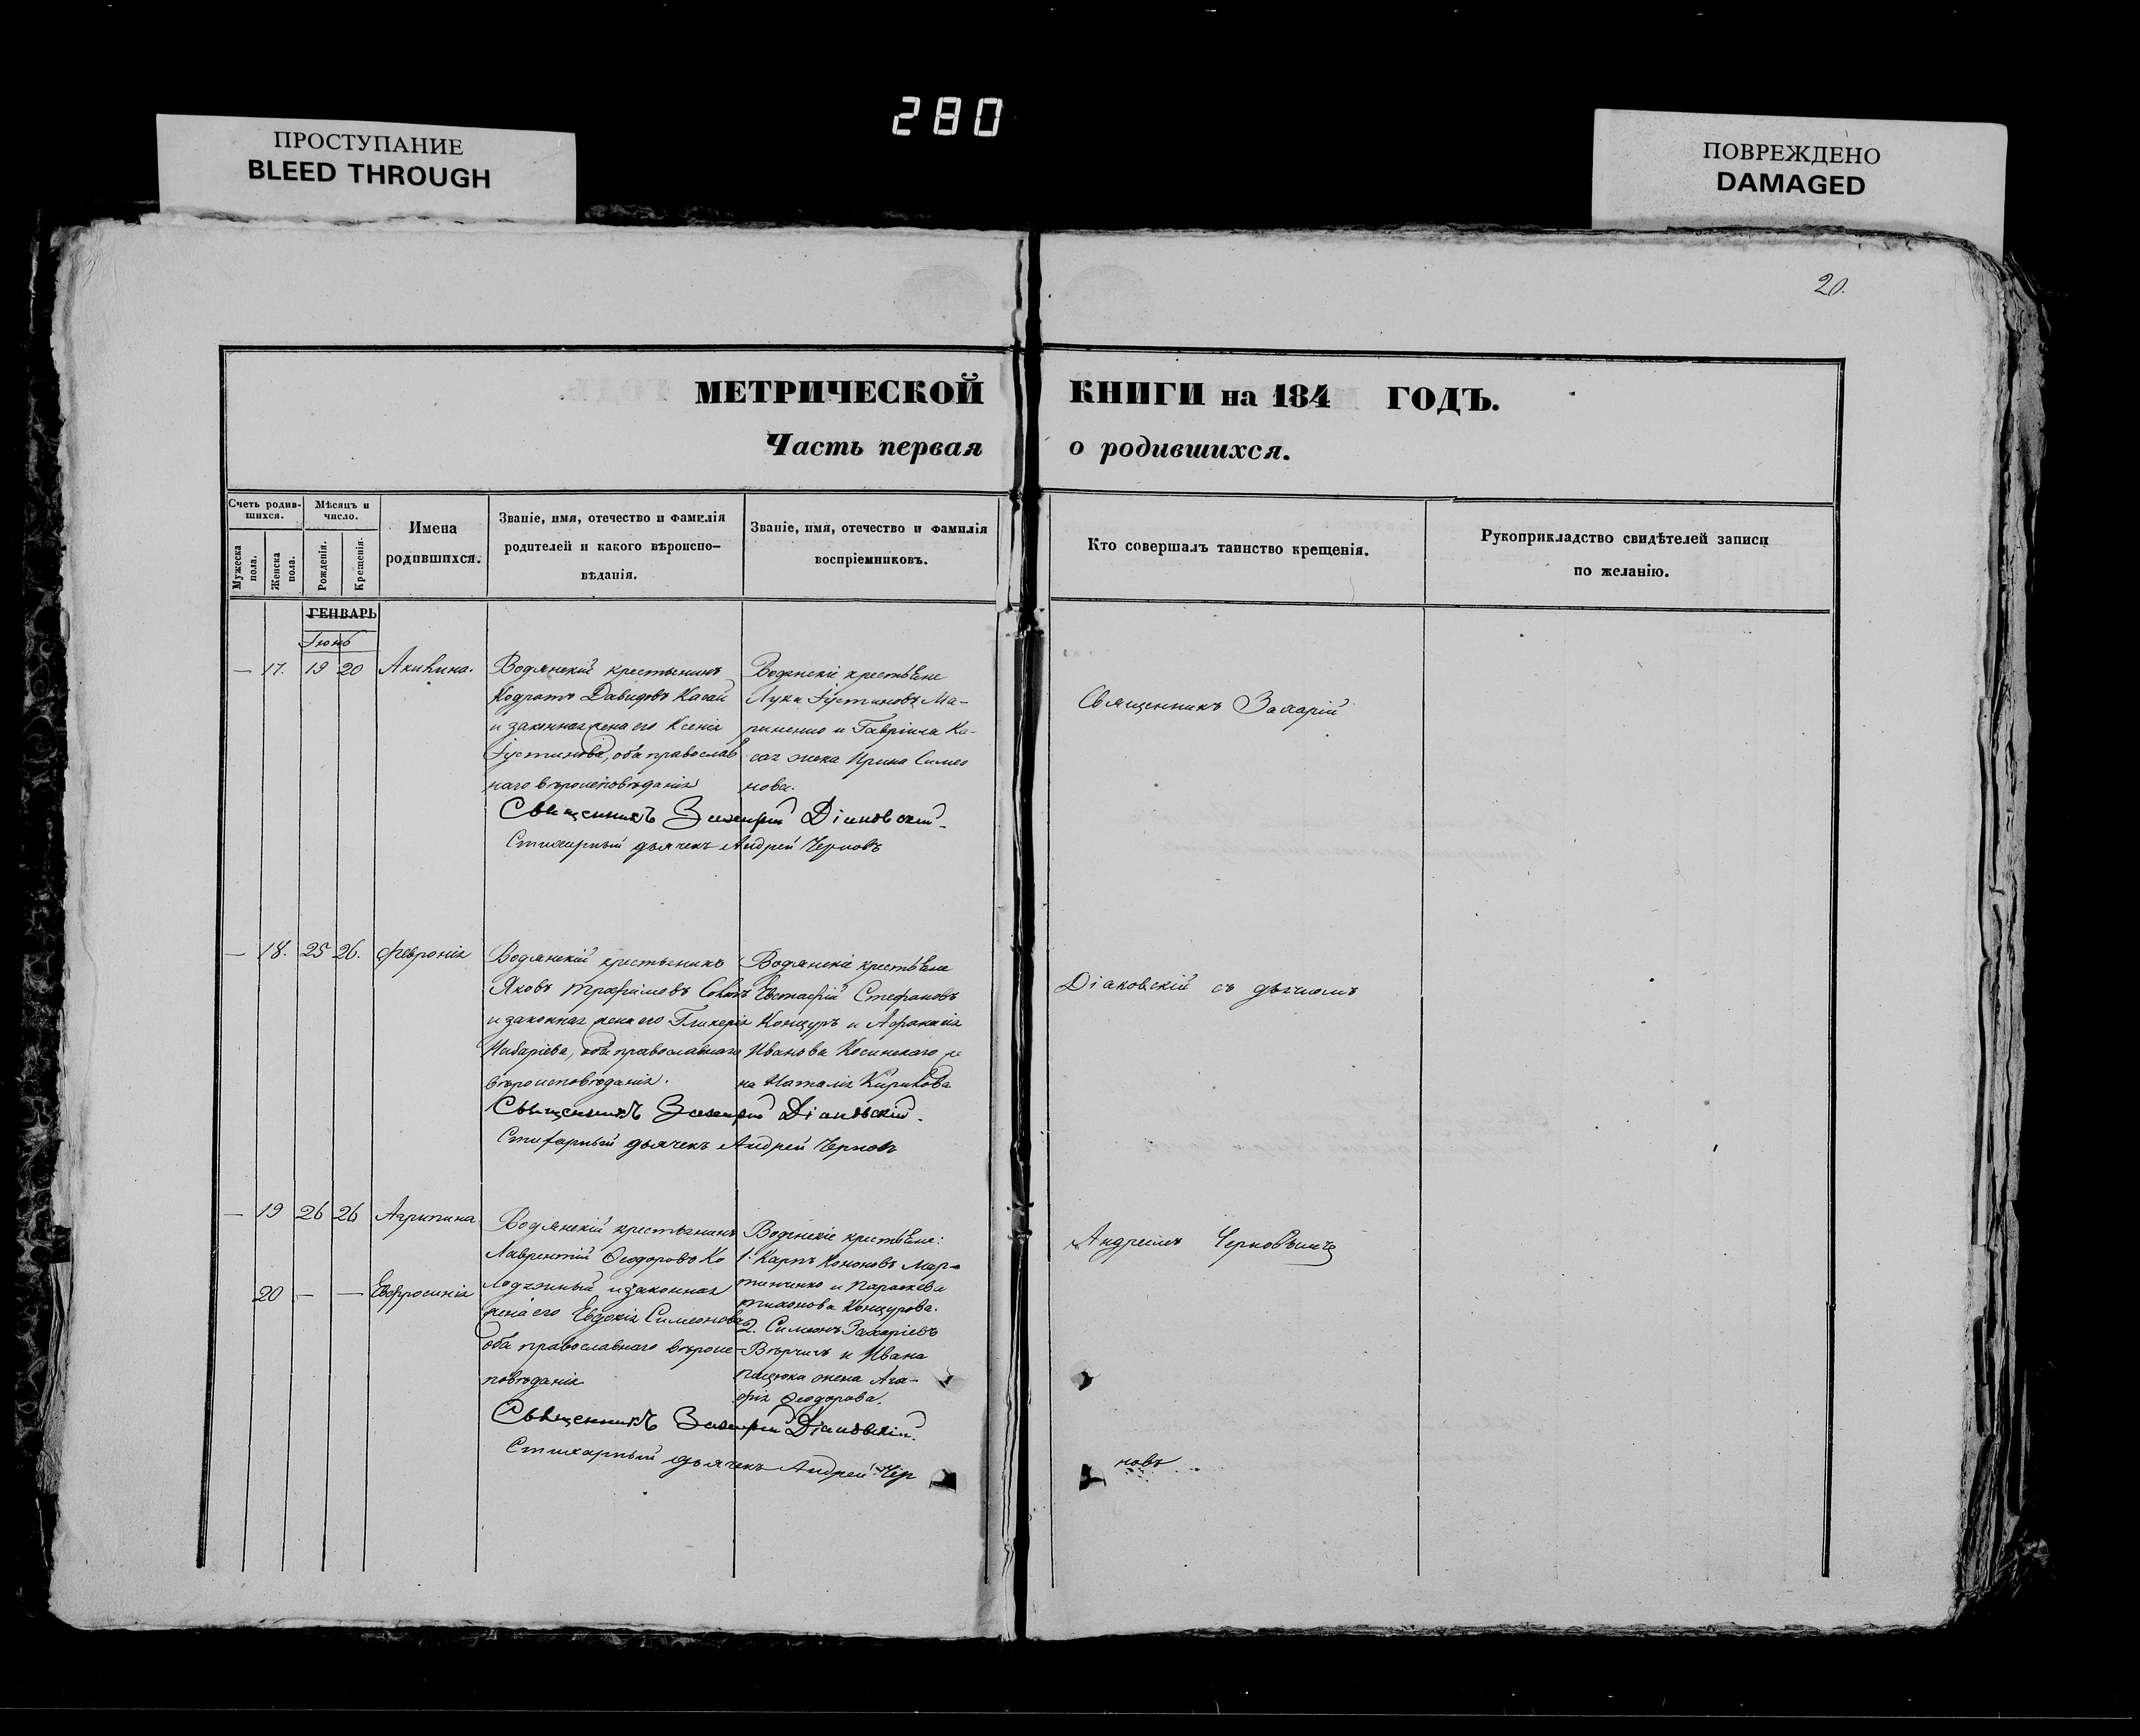 280
ПРОСТУПАНИЕ
BLEED THROUGH
ПОВРЕЖДЕНО
DAMAGED
20.
МЕТРИЧЕСКОЙ КНИГИ на 184 ГОДЪ.
Часть первая о родившихся.
Счетъ родив-
шихся.
Мужеска
пола.
Женска
пола.
Мѣсяцъ и
число.
Рожденія.
Крещенія.
Имена
родившихся.
Званіе, имя, отечество и фамилія
родителей и какого вѣроиспо-
вѣданія.
Званіе, имя, отечество и фамилія
воспріемниковъ.
Кто совершалъ таинство крещенія.
Рукоприкладство свидѣтелей записи
по желанію.
ГЕНВАРЬ
Іюнь
— 17. 19 20 Акилина.
Водянскій крестьянинъ
Кодратъ Давидовъ Касай
и законная жена его Ксенія
Іустинова, оба православ
наго вѣроисповѣданія
Водянскіе крестьяне
Лука Іустиновъ Ма-
риненко и Гавріила Ка-
сая жена Ирина Симео
нова.
Священникъ Захарій
Священникъ Захарій Діаковскій
Стихарный дьячекъ Андрей Черновъ
— 18. 25 26. Февронія
Водянскій крестьянинъ
Яковъ Трофимовъ
и законная жена его Гликерія
оба православнаго
вѣроисповѣданія.
Водянскіе крестьяне
Евстафій Стефановъ
Концуръ и Афанасія
Иванова Косинскаго же
на Наталія Кирилова
Діаковскій съ дьячкомъ
Священникъ Захарій Діаковскій.
Стихарный дьячекъ Андрей Черновъ
— 19 26 26 Агрипина
20 — — Евфросинія
Водянскій крестьянинъ
Лаврентій Ѳеодоровъ Ко
лодяжный и законная
жена его Евдокія Симеонова
оба православнаго вѣроис-
повѣданія
Водянскіе крестьяне:
1. Карпъ Кононовъ Мар-
тиненко и Параскева
Тихонова Концурова.
2. Симеонъ Захаріевъ
и Ивана
Пацюка жена Ага-
фія Ѳеодорова.
Андреемъ Черновымъ
Священникъ Захарій Діаковскій.
Стихарный дьячекъ Андрей Чер
новъ